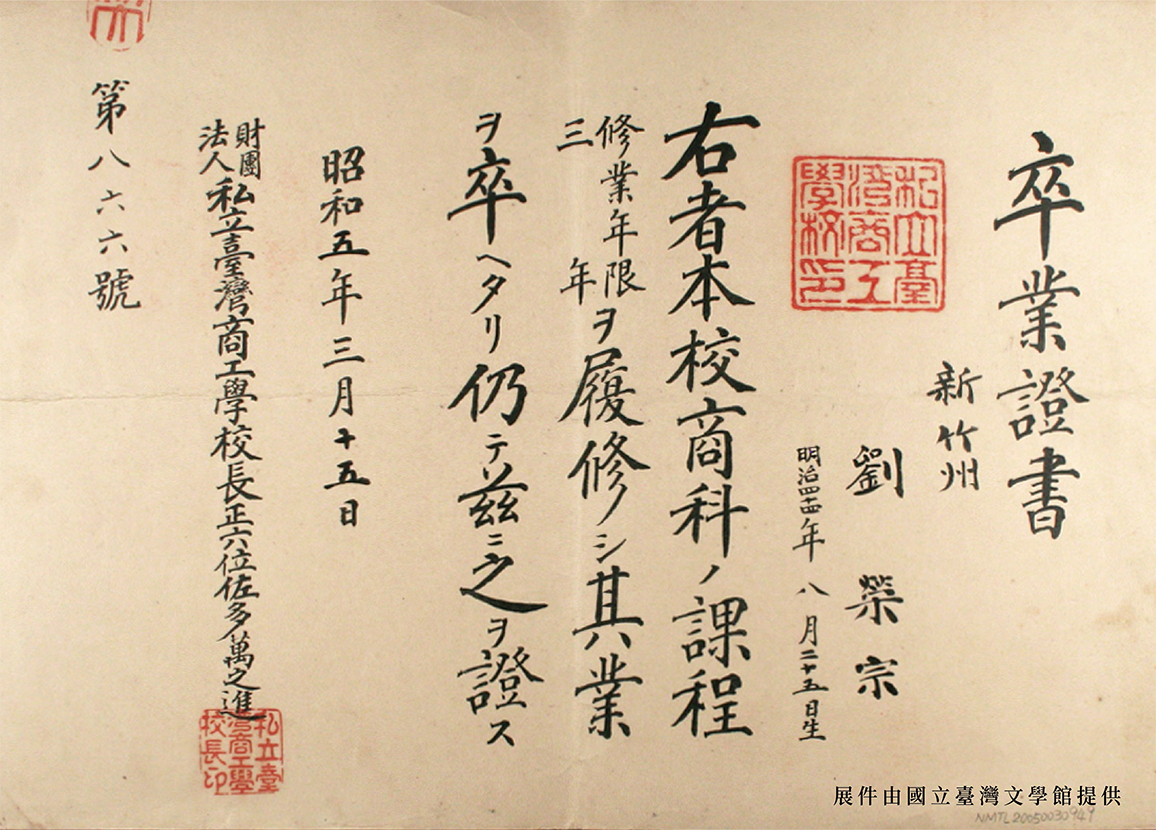 卒業證書
新竹州
劉榮宗
明治四十四年八月二十五日生
私立臺
灣商工
學校印
右者本校商科ノ課程
修業年限三年ヲ履修シ其業
ヲ卒ヘタリ仍テ茲ニ之ヲ證ス
昭和五年三月十五日
財團法人私立臺灣商工學校長正六位佐多萬之進
私立臺
灣商工學
校長印
第八六六號
展件由國立臺灣文學館提供
NMTL20050030949